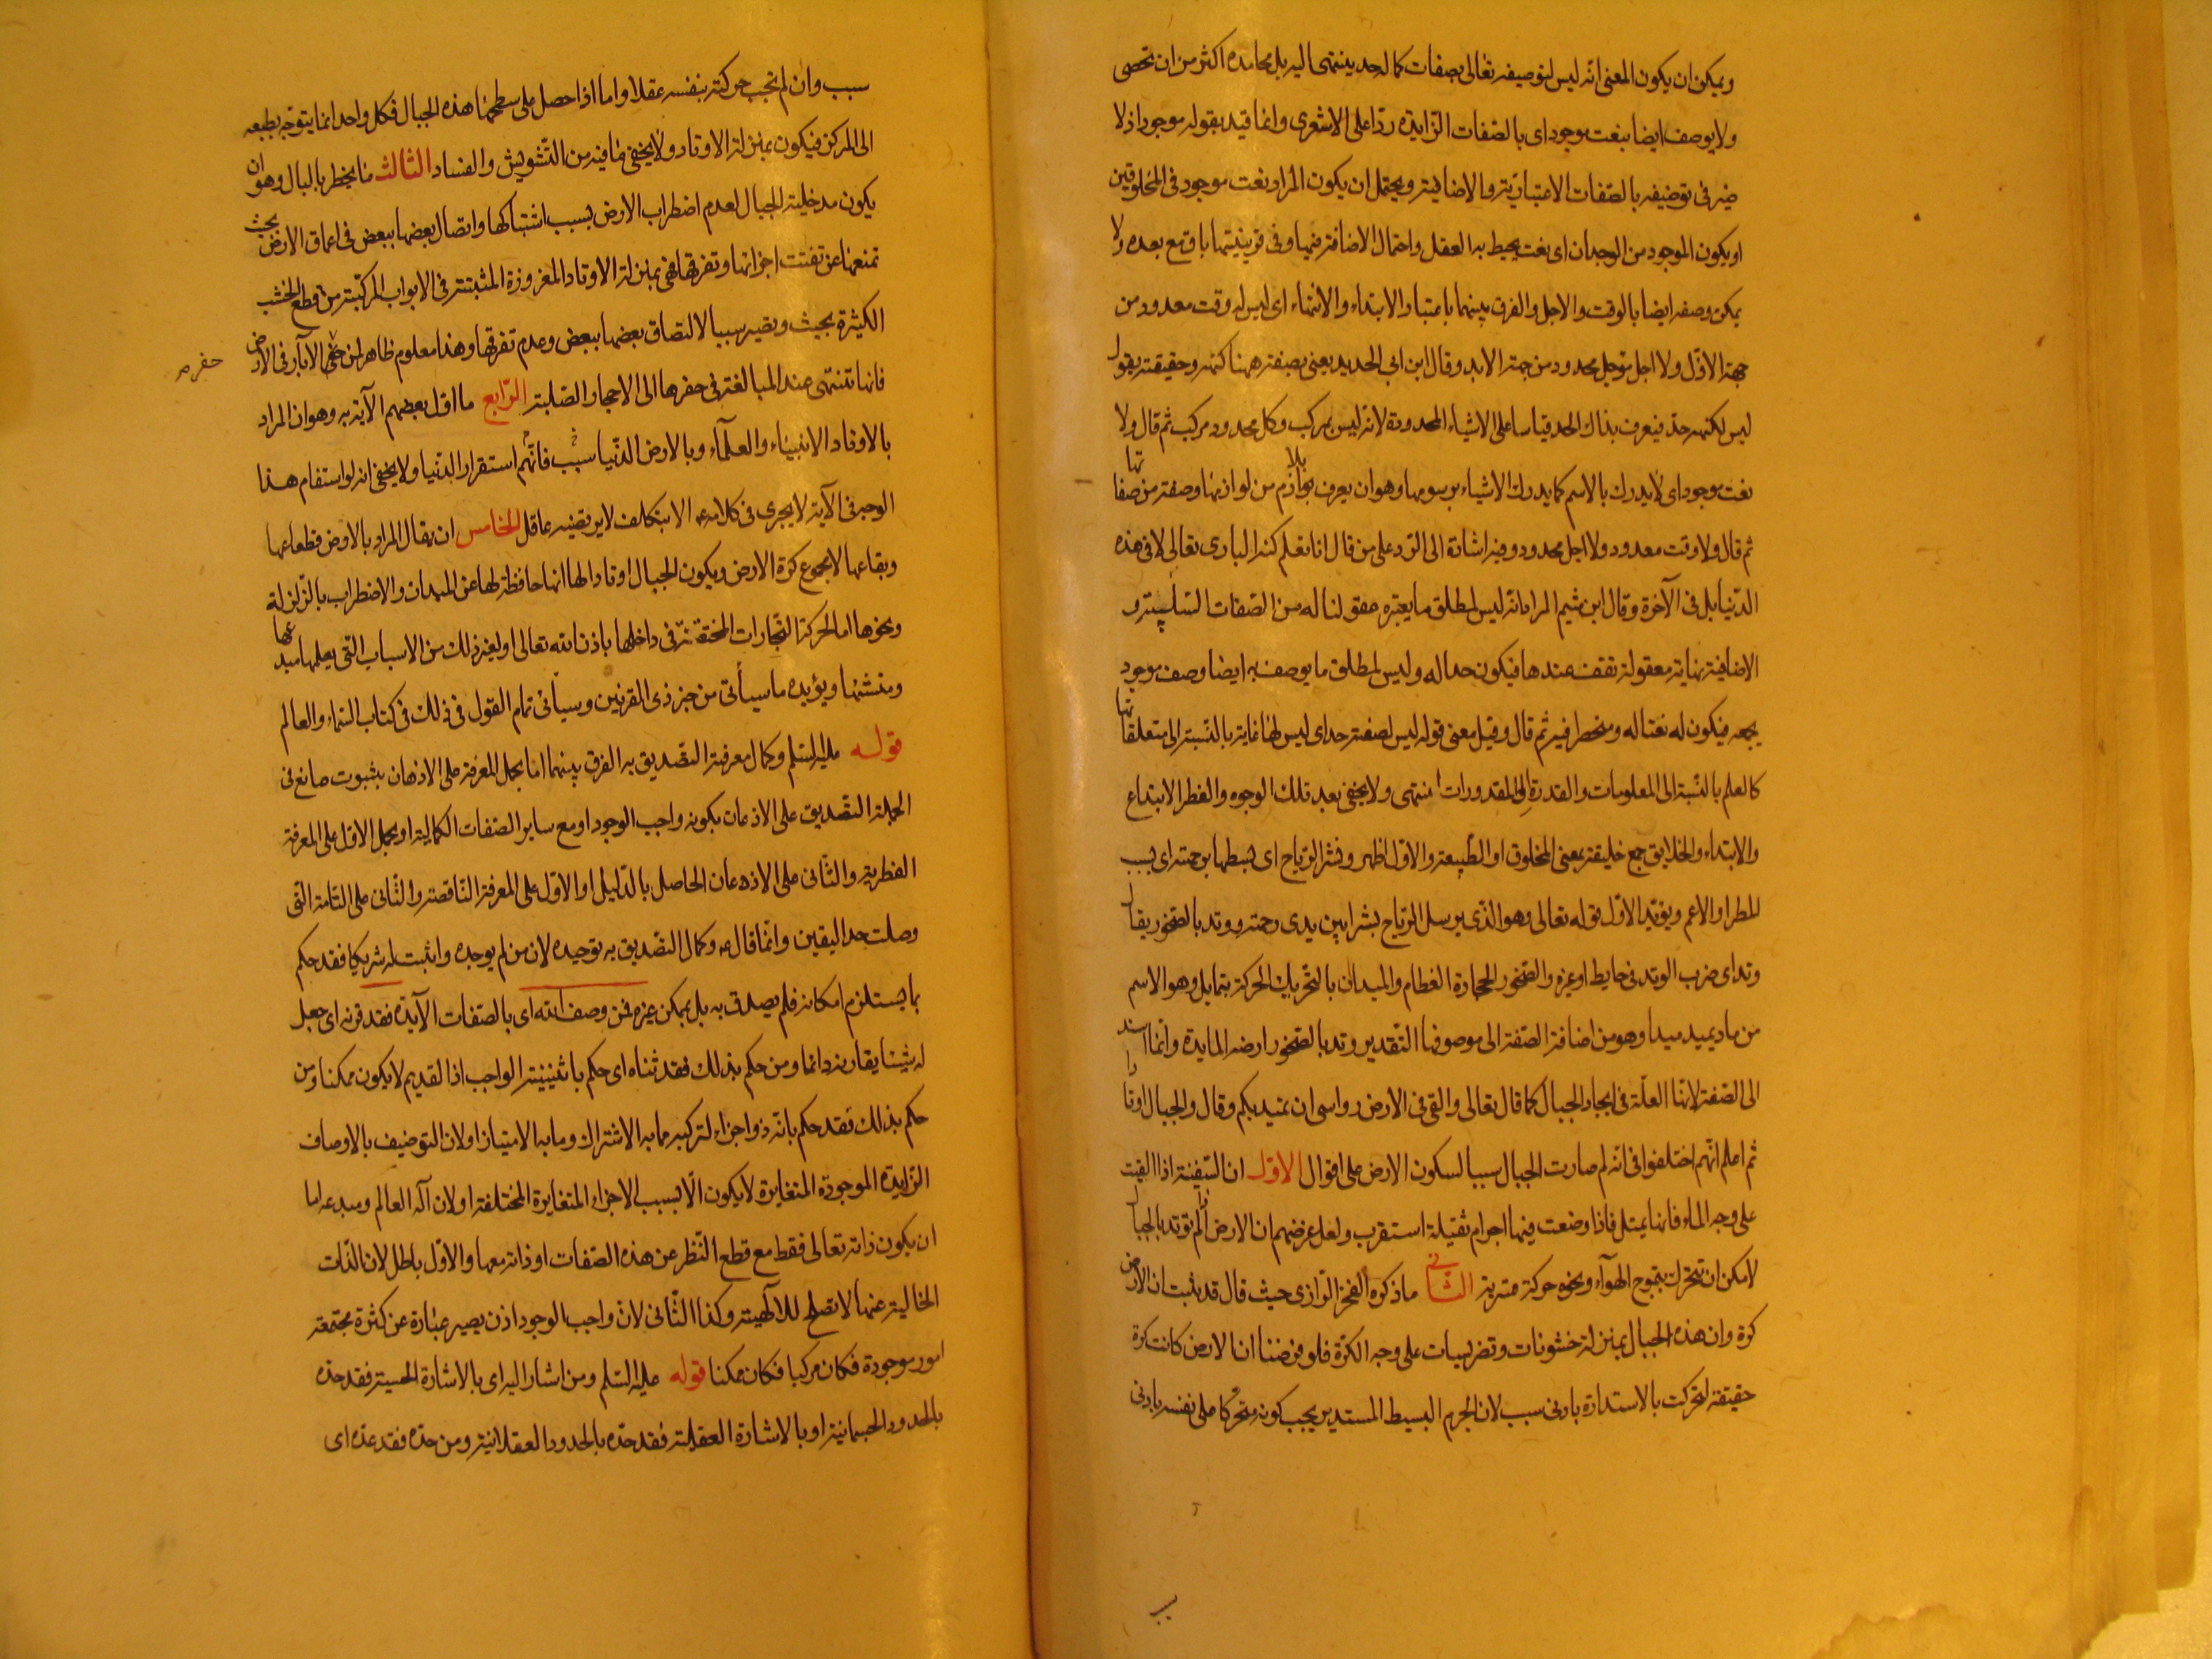 ويمكن ان يكون المعنى انه ليس لتوصيفه تعالى بصفات كماله حد ينتهى اليه بل محامده اكثر من ان تحصى
ولا يوصف ايضا بنعت موجود اى بالصفات الزايدة ردا على الاشعرى وانما قيد بقوله موجود اذ لا
ضير فى توصيفه بالصفات الاعتبارية والاضافية ويحتمل ان يكون المراد نعت موجود فى المخلوقين
او يكون الموجود من الوجدان اى نعت يحيط به العقل واحتمال الاضافة فيها وفى قرينيتها باق مع بعده ولا
يمكن وصفه ايضا بالوقت والاجل والفرق بينهما باعتبار الابتداء والانتهاء اى ليس له وقت معدود من
جهة الاول ولا اجل مؤجل محدود من جهة الابد وقال ابن ابى الحديد يعنى بصفته ههنا كنهه وحقيقته يقول
ليس لكنهه حد فيعرف بذاك الحد قياسا على الاشياء المحدودة لانه ليس بمركب وكل محدود مركب ثم قال ولا
نعت موجود اى لا يدرك بالاسم كما يدرك الاشياء برسومها وهو ان يعرف بلازم من لوازمها وصفة من صفاتها
ثم قال ولا وقت معدود ولا اجل محدود وفيه اشارة الى الرد على من قال انا نعلم كنه البارى تعالى لا فى هذه
الدنيا بل فى الآخرة وقال ابن ميثم المراد انه ليس لمطلق ما يعتبره عقولنا له من الصفات السلبية و
الاضافية نهاية معقولة تقف عندها فيكون حدا له وليس لمطلق ما يوصف به ايضا وصف موجود
يجمعه فيكون له نعتا له ومنحصرا فيه ثم قال وقيل معنى قوله ليس لصفته حد اى ليس لها غاية بالنسبة الى متعلقاتها
كالعلم بالنسبة الى المعلومات والقدرة الى المقدورات انتهى ولا يخفى بعد تلك الوجوه والفطر الابتداع
والابتداء والخلايق جمع خليقة بمعنى المخلوق او الطبيعة والاول اظهر ونشر الرياح اى بسطها برحمته اى بسبب
المطر او الاعم ويؤيد الاول قوله تعالى وهو الذى يرسل الرياح بشرا بين يدى رحمته ووتد بالصخور يقال
وتد اى ضرب الوتد فى حايط او غيره والصخور الحجارة العظام والميدان بالتحريك الحركة بتمايل وهو الاسم
من ماد يميد ميدا وهو من اضافة الصفة الى موصوفها التقدير وتد بالصخور ارضه المايدة وانما اسند
الى الصفة لانها العلة فى ايجاد الجبال كما قال تعالى والقى فى الارض رواسى ان تميد بكم وقال والجبال اوتادا
ثم اعلم انهم اختلفوا فى انه لم صارت الجبال سببا لسكون الارض على اقوال الاول ان السفينة اذا القيت
على وجه الماء فانها يميل فاذا وضعت فيها اجرام ثقيلة استقرت ولعل غرضهم ان الارض اذا لم توتد بالجبال
لامكن ان تتحرك بتموج الهوآء ونحوه حركة قسرية الثانى ما ذكره الفخر الرازى حيث قال قد ثبت ان الارض
كرة وان هذه الجبال بمنزلة خشونات وتضريسات على وجه الكرة فلو فرضنا ان الارض كانت كرة
حقيقة لتحركت بالاستدارة بادنى سبب لان الجرم البسيط المستدير يجب كونه متحركا على نفسه بادنى
سبب
سبب وان لم تجب حركته بنفسه عقلا واما اذا حصل على سطحها هذه الجبال فكل واحد انما يتوجه بطبعه
الى المركز فيكون بمنزلة الاوتاد ولا يخفى ما فيه من التشويش والفساد الثالث ما يخطر بالبال وهو ان
يكون مدخلية الجبال لعدم اضطراب الارض بسبب اشتباكها واتصال بعضها ببعض فى اعماق الارض بحيث
تمنعها عن تفتت اجزائها وتفرقها فهى بمنزلة الاوتاد المغروزة المثبتة فى الابواب المركبة من قطع الخشب
الكثيرة بحيث وتصير سببا لالتصاق بعضها ببعض وعدم تفرقها وهذا معلوم ظاهر لمن حفر الابآر فى الارض
حفر
فانها تنتهى عند المبالغة فى حفرها الى الاحجار الصلبة الرابع ما اول بعضهم الآية به وهو ان المراد
بالاوتاد الانبياء والعلمآء وبالارض الدنيا سبب فانهم استقرار الدنيا ولا يخفى انه لو استقام هذا
الوجه فى الآية لا يجرى فى كلامه عه الا بتكلف لا يرتضيه عاقل الخامس ان يقال المراد بالارض قطعاتها
وبقاعها لا مجموع كرة الارض ويكون الجبال اوتادا لها انها حافظة لها عن الميدان والاضطراب بالزلزلة
ونحوها اما لحركة البخارات المختقنة فى داخلها باذن الله تعالى او لغير ذلك من الاسباب التى يعلمها مبدعها
ومنشئها ويؤيده ما سيأتى من خبر ذى القرنين وسيأتى تمام القول فى ذلك فى كتاب السماء والعالم
قوله عليه السلم وكمال معرفته التصديق به الفرق بينهما اما بحمل المعرفة على الاذهان بثبوت صانع فى
الجملة التصديق على الاذعان بكونه واجب الوجود او مع ساير الصفات الكمالية او يحمل الاول على المعرفة
الفطرية والثانى على الاذعان الحاصل بالدليل او الاول على المعرفة الناقصة والثانى على التامة التى
وصلت حد اليقين وانما قال عه وكمال التصديق به توحيده لان من لم يوحده واثبت له شريكا فقد حكم
بما يستلزم امكانه فلم يصدق به بل بممكن غيره فمن وصف الله اى بالصفات الآيدة فقد قرنه اى جعل
له شيئا يقارنه دائما ومن حكم بذلك فقد ثناه اى حكم باثنينية الواجب اذ القديم لا يكون ممكنا ومن
حكم بذلك فقد حكم بانه ذو اجزاء لتركبه مما به الاشتراك وما به الامتياز او لان التوصيف بالاوصاف
الزايدة الموجودة المتغايرة لا يكون الا بسبب الاجزاء المتغايرة المختلفة او لان آله العالم ومبدعه اما
ان يكون ذاته تعالى فقط مع قطع النظر عن هذه الصفات او ذاته معها والاول باطل لان الذات
الخالية عنها لا تصلح للالهية وكذا الثانى لان واجب الوجود اذن يصير عبارة عن كثرة مجتمعة
امور موجودة فكان مركبا فكان ممكنا قوله عليه السلم ومن اشار اليه اى بالاشارة الحسية فقد حده
بالحدود الجسمانية او بالاشارة العقلية فقد حده بالحدود العقلانية ومن حده فقد عده اى